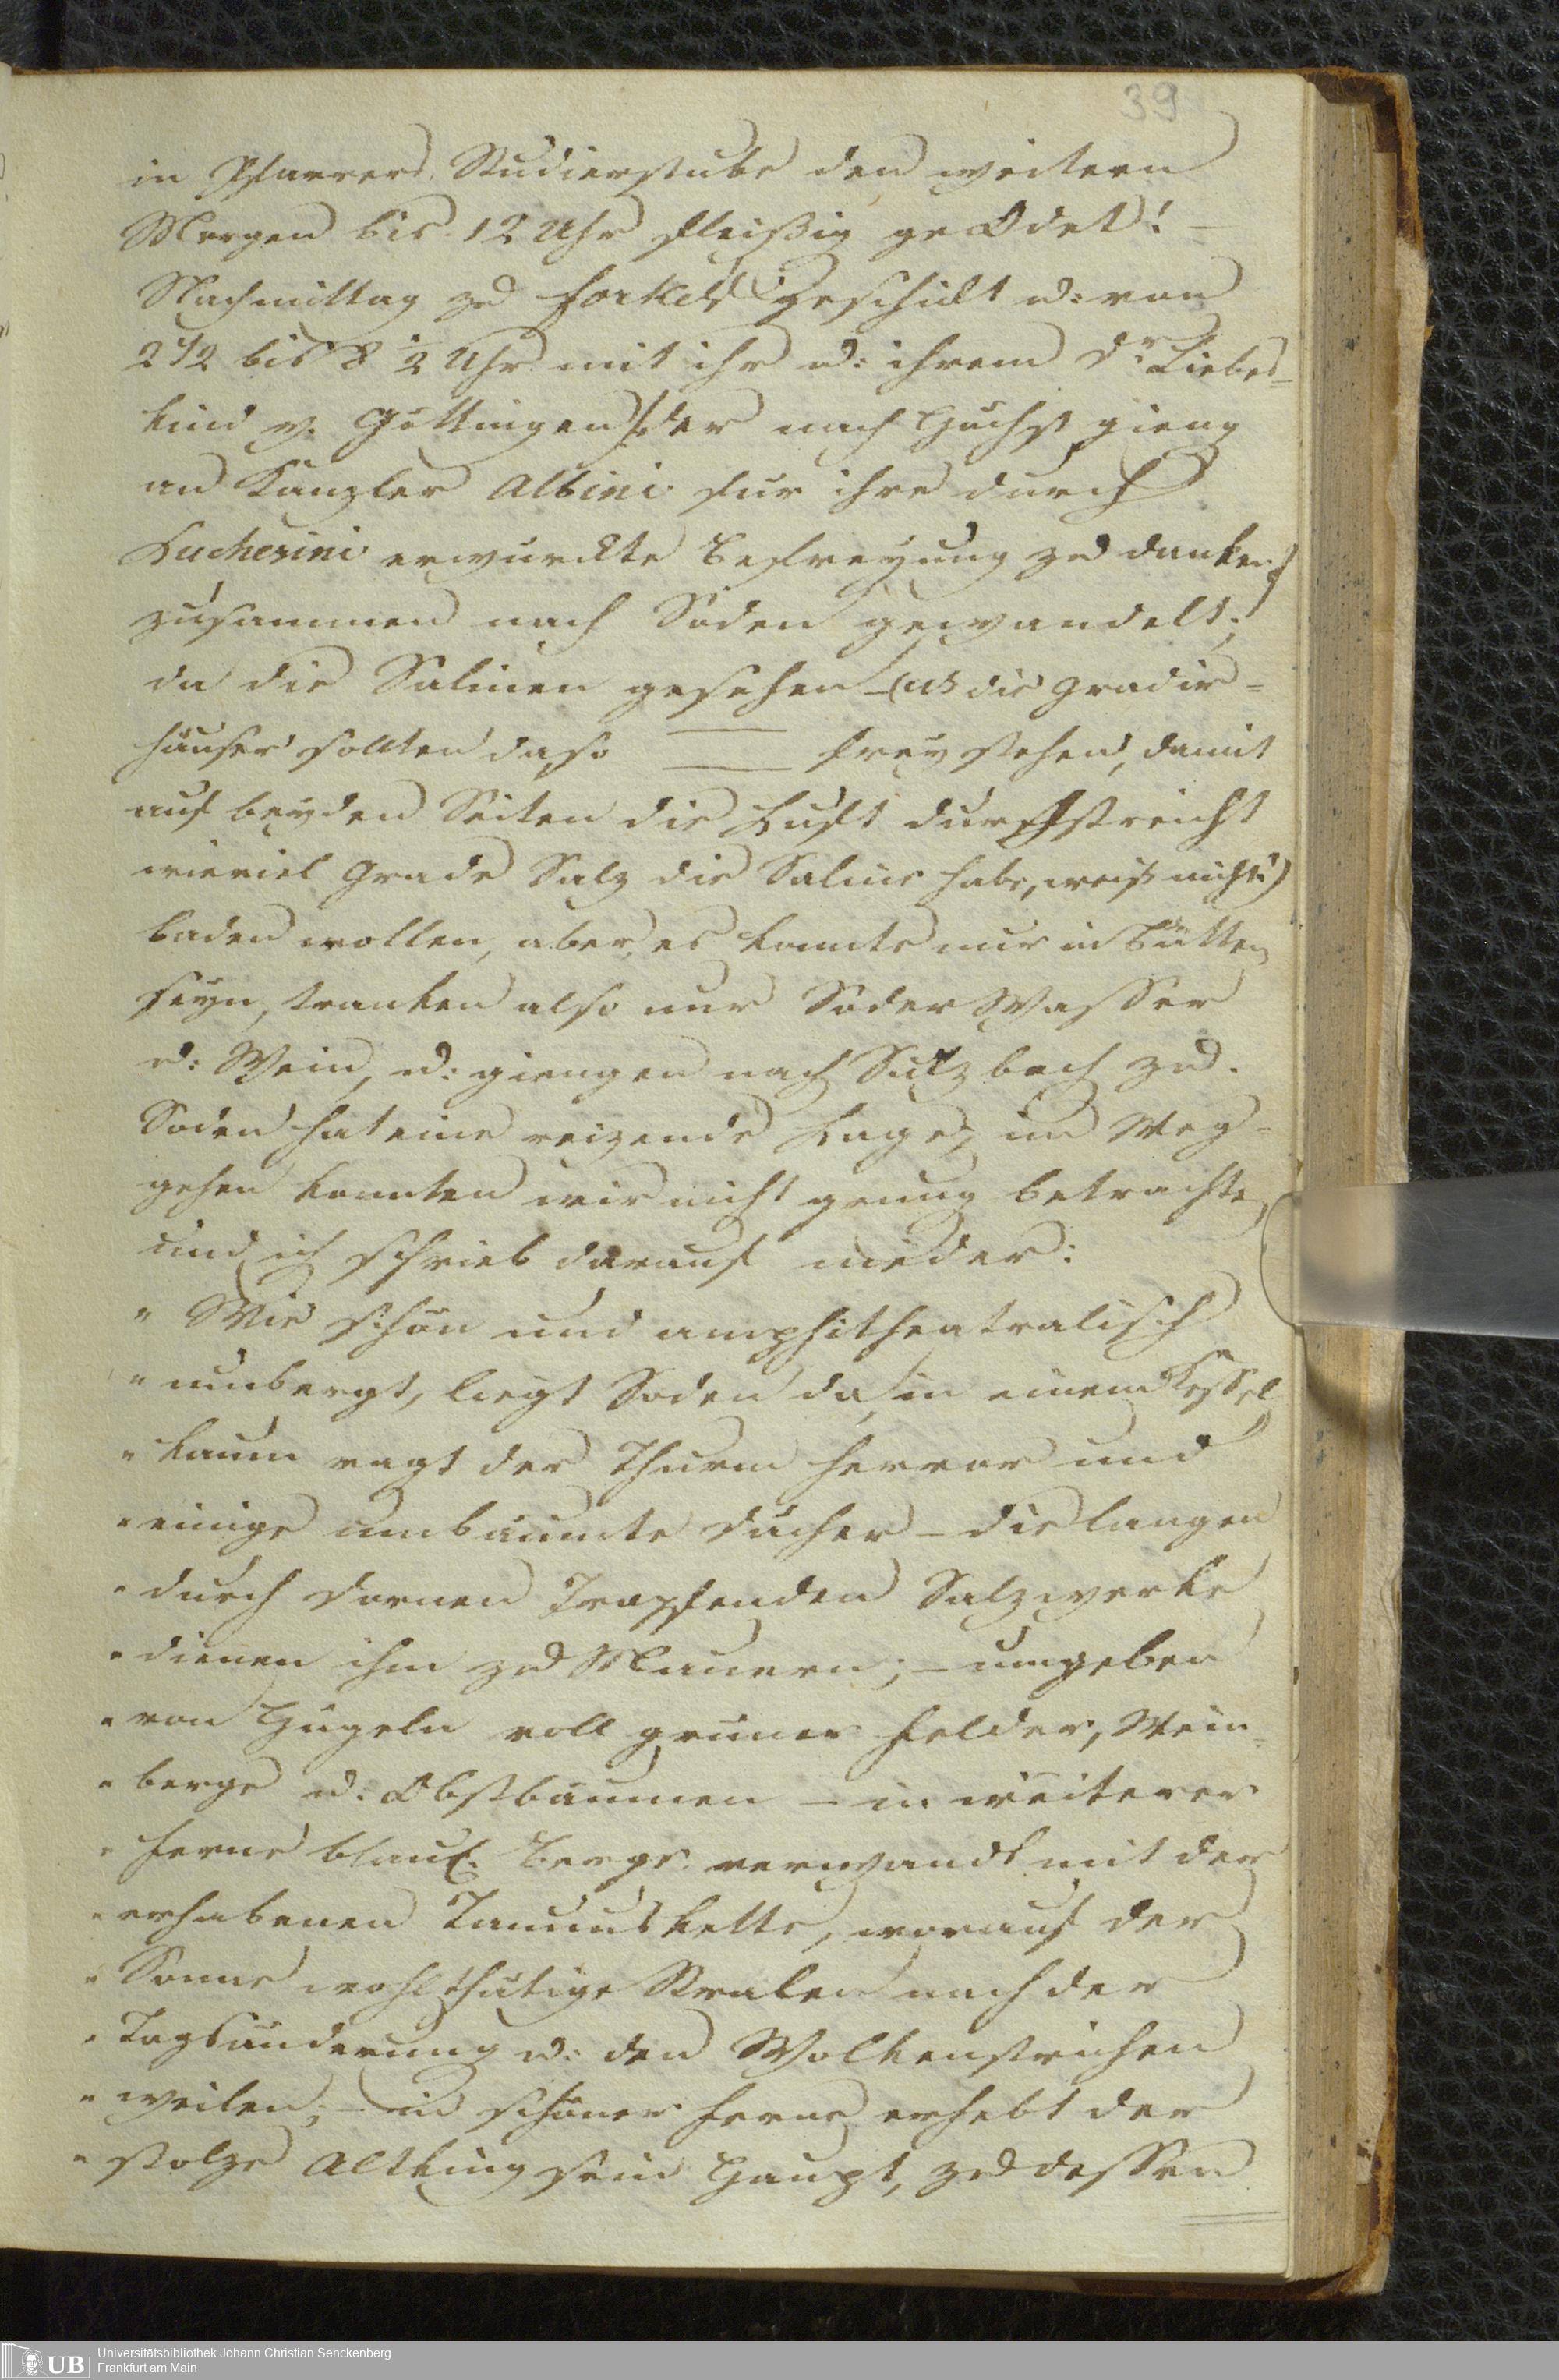 39
in Pfarrers Studierstube den weitern
Morgen bis 12 Uhr fleißig geOdet! –
Nachmittag zu Forkels geschickt u: von
2 1/2 bis 8 1/2 Uhr mit ihr u: ihrem Dr Liebes=
kind v. Göttingen /: der nach Höchst gieng
an Kanzler Albini für ihre durch
Lucherini erwürckte Befreyung zu danken /
zusammen nach Soden gewandelt;
da die Salinen gesehen – (NB die Gradir=
häuser sollten daso frey stehen, damit
auf beyden Seiten die Luft durchstreicht
wieviel Grade Salz die Saline habe, weiß nicht!)
baden wollen, aber es konnte nur in Bütten
seyn, tranken also nur Soder Wasser
u: Wein, u: giengen nach Sulzbach zu.
Soden hat eine reizende Lage, im Weg=
gehen konnten wir nicht genug betrachten
und ich schrieb darauf nieder:
" Wie schön und amphitheatralisch
" umbergt, liegt Soden da, in einem Kessel
" kaum ragt der Thurm hervor und
" einige umbäumte Dächer – die langen
" durch Dornen Tropfenden Salzwerke
" dienen ihm zu Mauern; – umgeben
" von Hügeln voll grüner Felder, Wein=
" berge u: Obstbäumen – in weiterer
" Ferne blaue Berge verwandt mit der
" erhabenen Taunuskette, worauf der
" Sonne wohlthätige Stralen nach der
" Tagsänderung u: den Wolkenstrichen
" weilen; – in schöner Ferne erhebt der
" stolze Altking sein Haupt, zu dessen
UB
Universitätsbibliothek Johann Christian Senckenberg
Frankfurt am Main